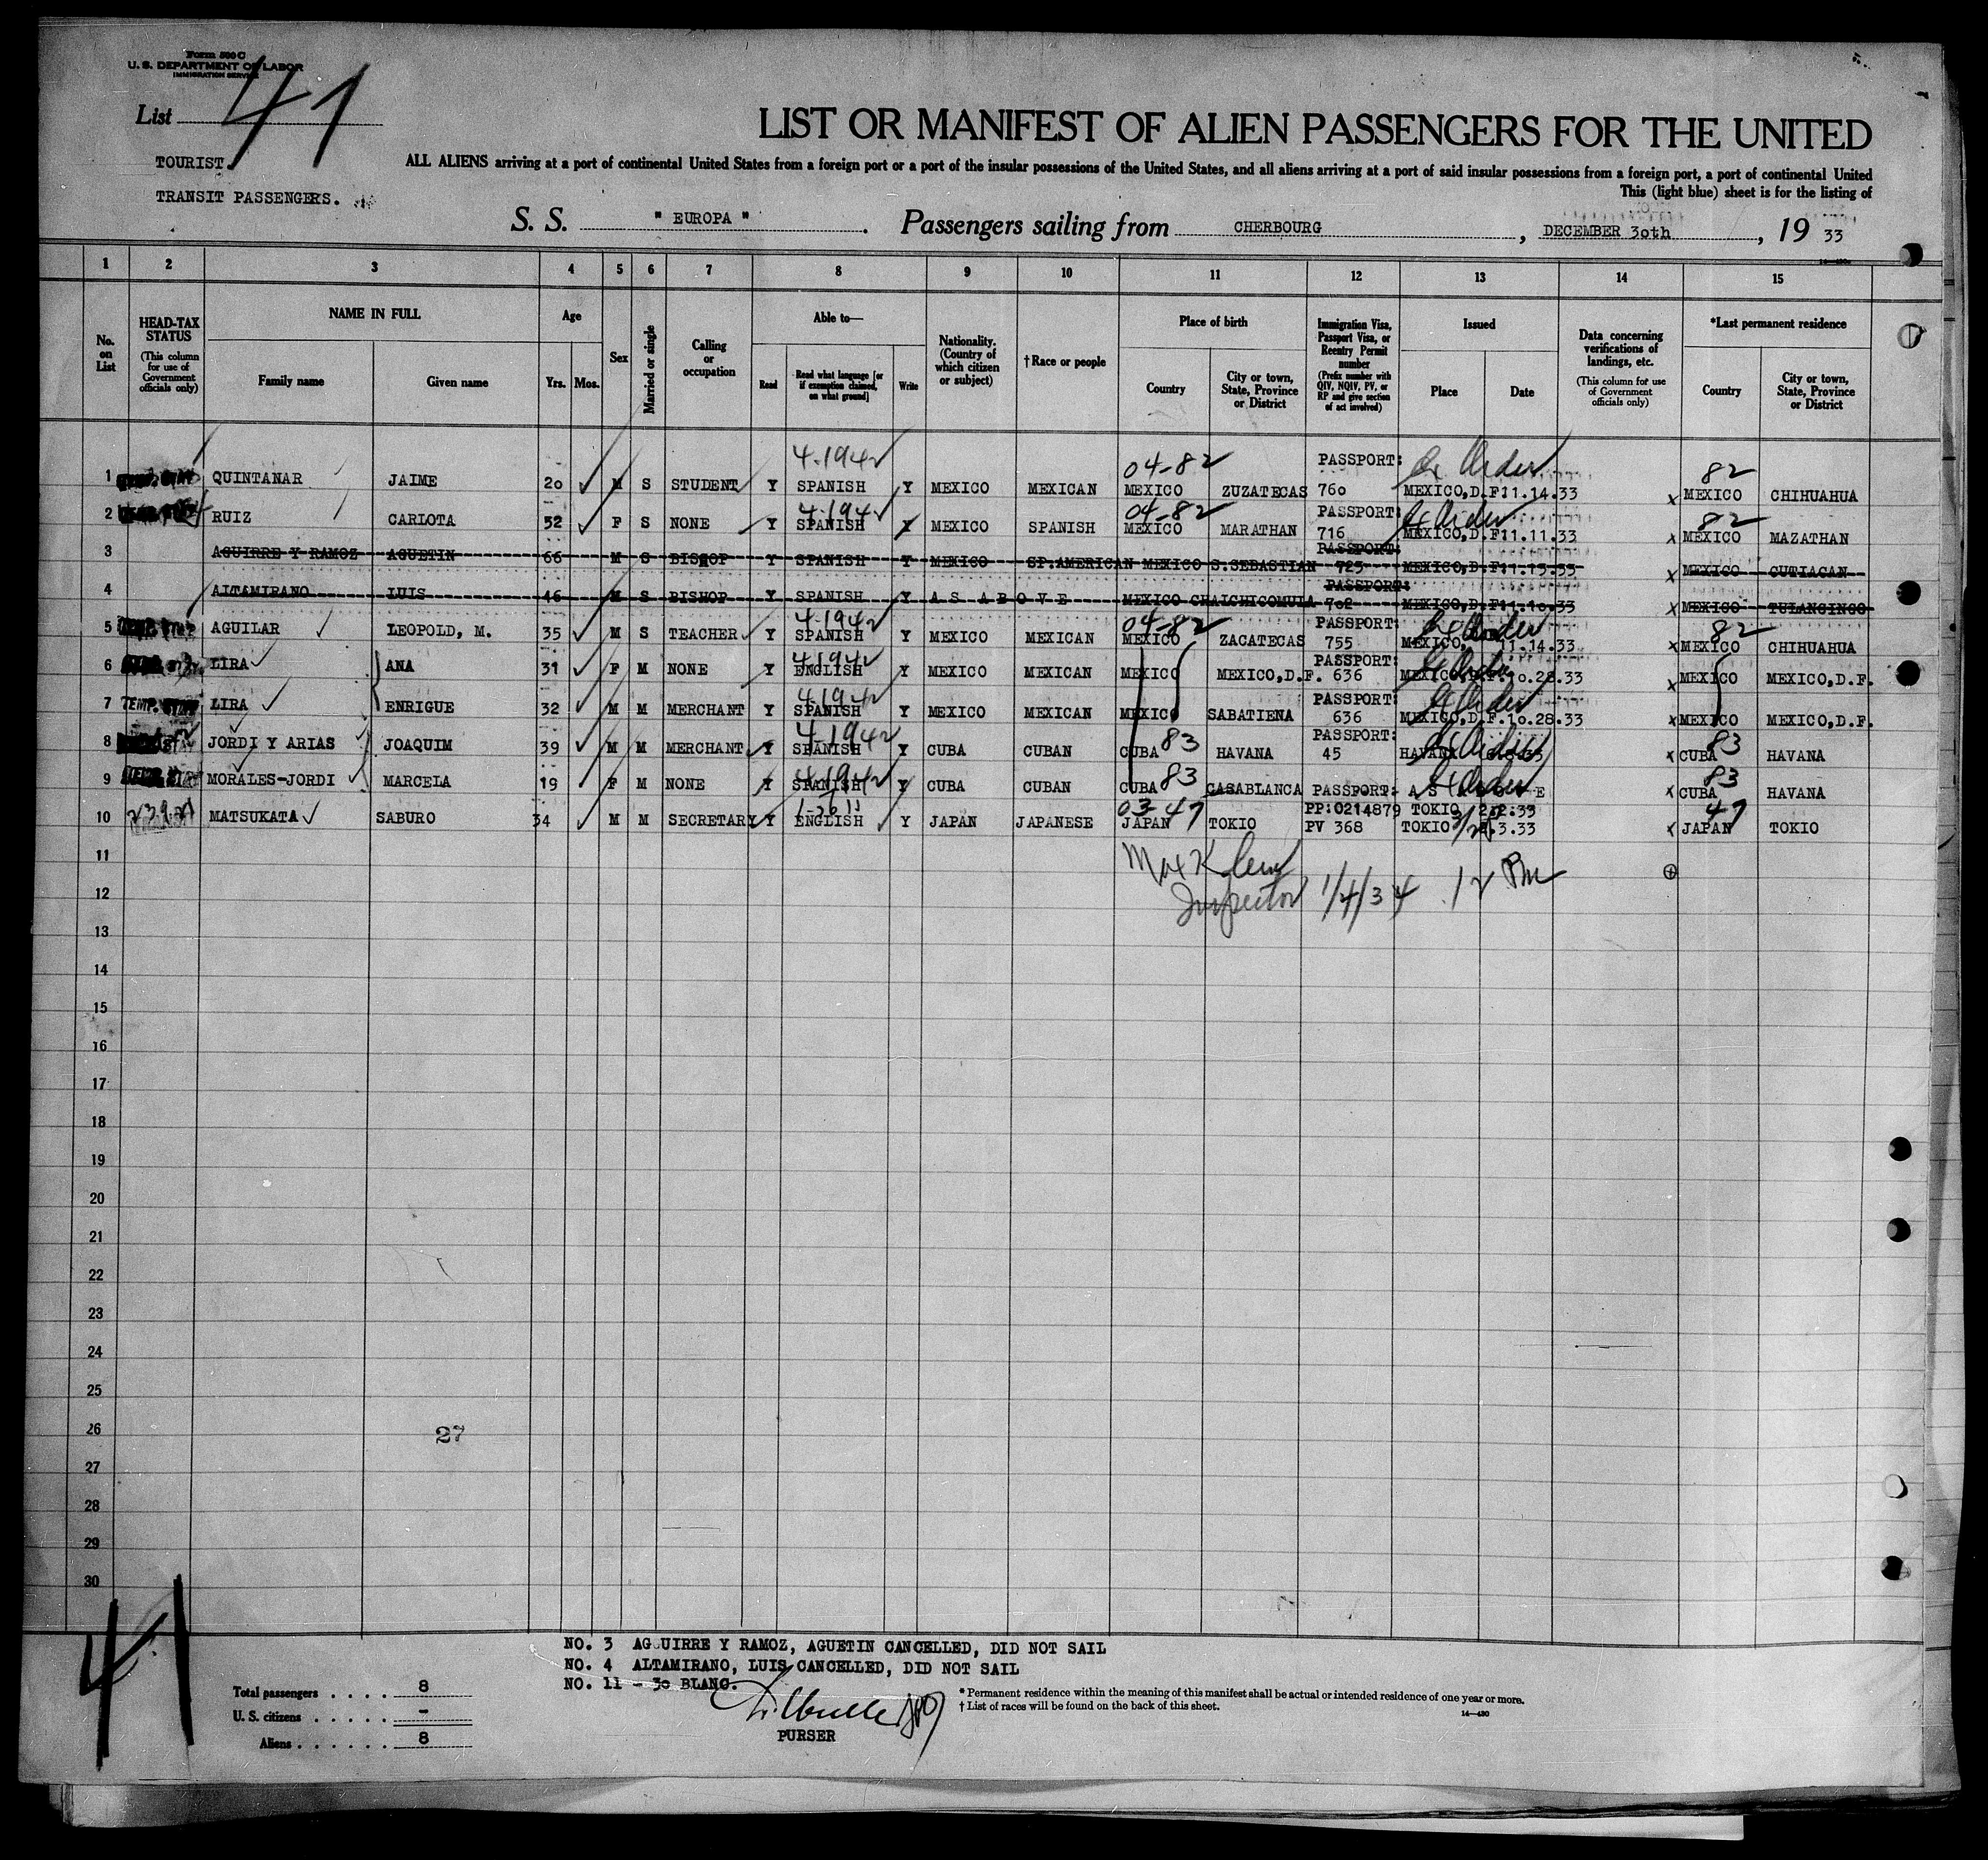 Form 500 C
U. S. DEPARTMENT OF LABOR
IMMIGRATION SERVICE
List 41
LIST OR MANIFEST OF ALIEN PASSENGERS FOR THE UNITED
TOURIST
ALL ALIENS arriving at a port of continental United States from a foreign port or a port of the insular possessions of the United States, and all aliens arriving at a port of said insular possessions from a foreign port, a port of continental United
TRANSIT PASSENGERS.
This (light blue) sheet is for the listing of
S. S. " EUROPA " . Passengers sailing from CHERBOURG , DECEMBER 30th , 19 33
1 2 3 4 5 6 7 8 9 10 11 12 13 14 15
No. on List
HEAD-TAX STATUS
(This column for use of Government officials only)
NAME IN FULL
Family name
Given name
Age
Yrs. Mos.
Sex
Married or single
Calling or occupation
Able to—
Read
Read what language [or if exemption claimed, on what ground]
Write
Nationality. (Country of which citizen or subject)
†Race or people
Place of birth
Country
City or town, State, Province or District
Immigration Visa, Passport Visa, or Reentry Permit number
(Prefix number with QIV, NQIV, PV, or RP and give section of act involved)
Issued
Place
Date
Data concerning verifications of landings, etc.
(This column for use of Government officials only)
*Last permanent residence
Country
City or town, State, Province or District
4-1942 04-82 PASSPORT: 82
1 QUINTANAR JAIME 20 M S STUDENT Y SPANISH Y MEXICO MEXICAN MEXICO ZUZATECAS 760 MEXICO,D.F11.14.33 x MEXICO CHIHUAHUA
4-1942 04-82 PASSPORT: 82
2 RUIZ CARLOTA 52 F S NONE Y SPANISH Y MEXICO SPANISH MEXICO MARATHAN 716 MEXICO,D.F11.11.33 x MEXICO MAZATHAN
PASSPORT:
3 AGUIRRE Y RAMOZ AGUETIN 66 M S BISHOP Y SPANISH Y MEXICO SP.AMERICAN MEXICO S.SEBASTIAN 725 MEXICO,D.F11.13.33 x MEXICO CUTIACAN
PASSPORT:
4 ALTAMIRANO LUIS 46 M S BISHOP Y SPANISH Y AS ABOVE MEXICO CHALCHICOMULA 702 MEXICO,D.F11.10.33 x MEXICO TULANCINGO
4-1942 04-82 PASSPORT: 82
5 AGUILAR LEOPOLD, M. 35 M S TEACHER Y SPANISH Y MEXICO MEXICAN MEXICO ZACATECAS 755 MEXICO, 11.14.33 x MEXICO CHIHUAHUA
4-1942 PASSPORT:
6 LIRA ANA 31 F M NONE Y ENGLISH Y MEXICO MEXICAN MEXICO MEXICO,D.F. 636 MEXICO,D.F.10.28.33 x MEXICO MEXICO,D.F.
4-1942 PASSPORT:
7 LIRA ENRIGUE 32 M M MERCHANT Y SPANISH Y MEXICO MEXICAN MEXICO SABATIENA 636 MEXICO,D.F.10.28.33 x MEXICO MEXICO,D.F.
4-1942 83 PASSPORT: 83
8 JORDI Y ARIAS JOAQUIM 39 M M MERCHANT Y SPANISH Y CUBA CUBAN CUBA HAVANA 45 HAVANA x CUBA HAVANA
4-1942 83 83
9 MORALES-JORDI MARCELA 19 F M NONE Y SPANISH Y CUBA CUBAN CUBA CASABLANCA PASSPORT: x CUBA HAVANA
03-47 PP:0214879 TOKIO 47
10 MATSUKATA SABURO 34 M M SECRETARY Y ENGLISH Y JAPAN JAPANESE JAPAN TOKIO PV 368 TOKIO x JAPAN TOKIO
11
12
Inspector 1/4/34 12 Pm
13
14
15
16
17
18
19
20
21
22
23
24
25
26
27
27
28
29
30
41
NO. 3 AGUIRRE Y RAMOZ, AGUETIN CANCELLED, DID NOT SAIL
NO. 4 ALTAMIRANO, LUIS CANCELLED, DID NOT SAIL
NO. 11 - 30 BLANC.
PURSER
Total passengers . . . . 8
U. S. citizens . . . . . -
Aliens . . . . . . 8
* Permanent residence within the meaning of this manifest shall be actual or intended residence of one year or more.
† List of races will be found on the back of this sheet.
14—430